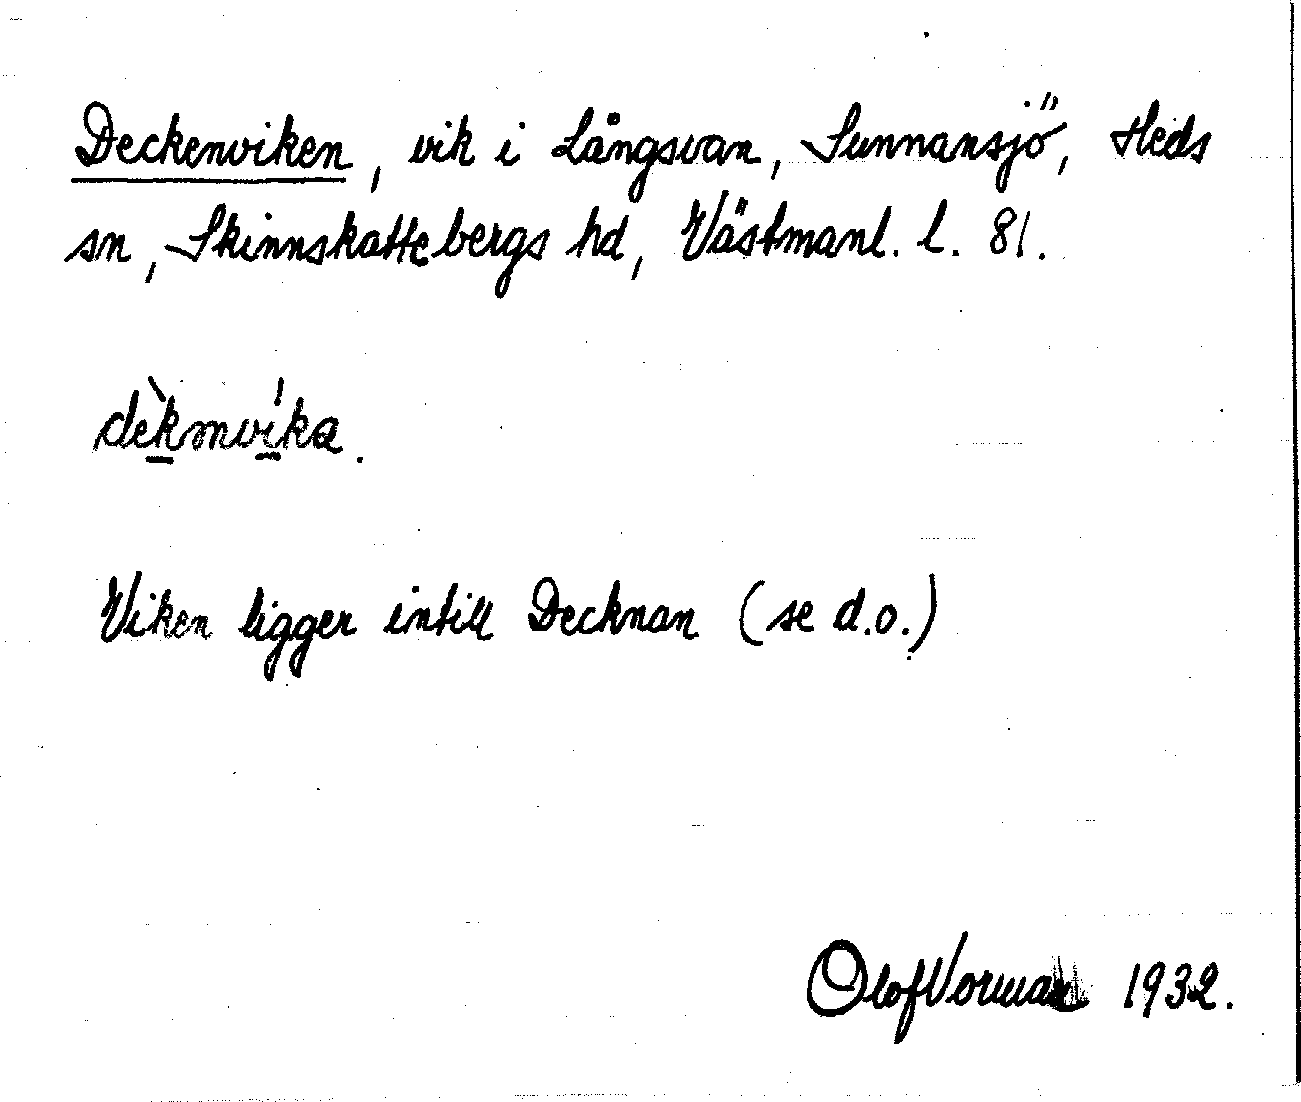 Deckenviken, vik i Långsvan, Sunnansjö, Heds
sn, Skinnskattebergs hd, Västmanl. l. 81.
dèkmvíka.
Viken ligger intill Decknan (se d.o.)
Olof Vorman 1932.